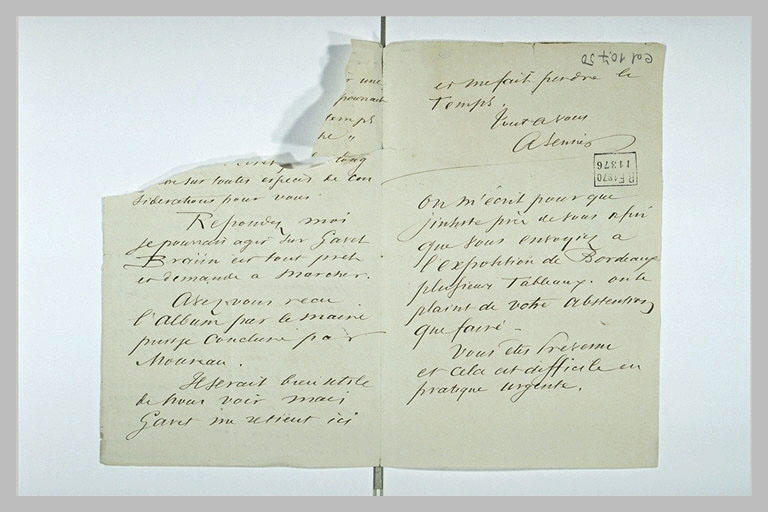 r une
pourrait
temps
he "
tong
on sur toutes espèces de con
siderations pour vous
Repondez moi
je pourrai agir sur Gavet
Braün est tout prêt
et demande a marcher.
Avez vous recu
l'album par le maire
puis je Conclure par
Moureau.
Il serait bien utile
de nous voir mais
Gavet me retient ici
et me fait perdre le
Temps.
Tout a vous
ASensier
Cat 10.750
R.F 1870
11376
On m'écrit pour que
j'insiste près de vous afin
que vous envoyiez a
l'exposition de Bordeaux
plusieurs Tableaux. on le
plaint de votre abstention
que faire -
Vous êtes Prevenu
et cela est difficile en
pratique urgente.